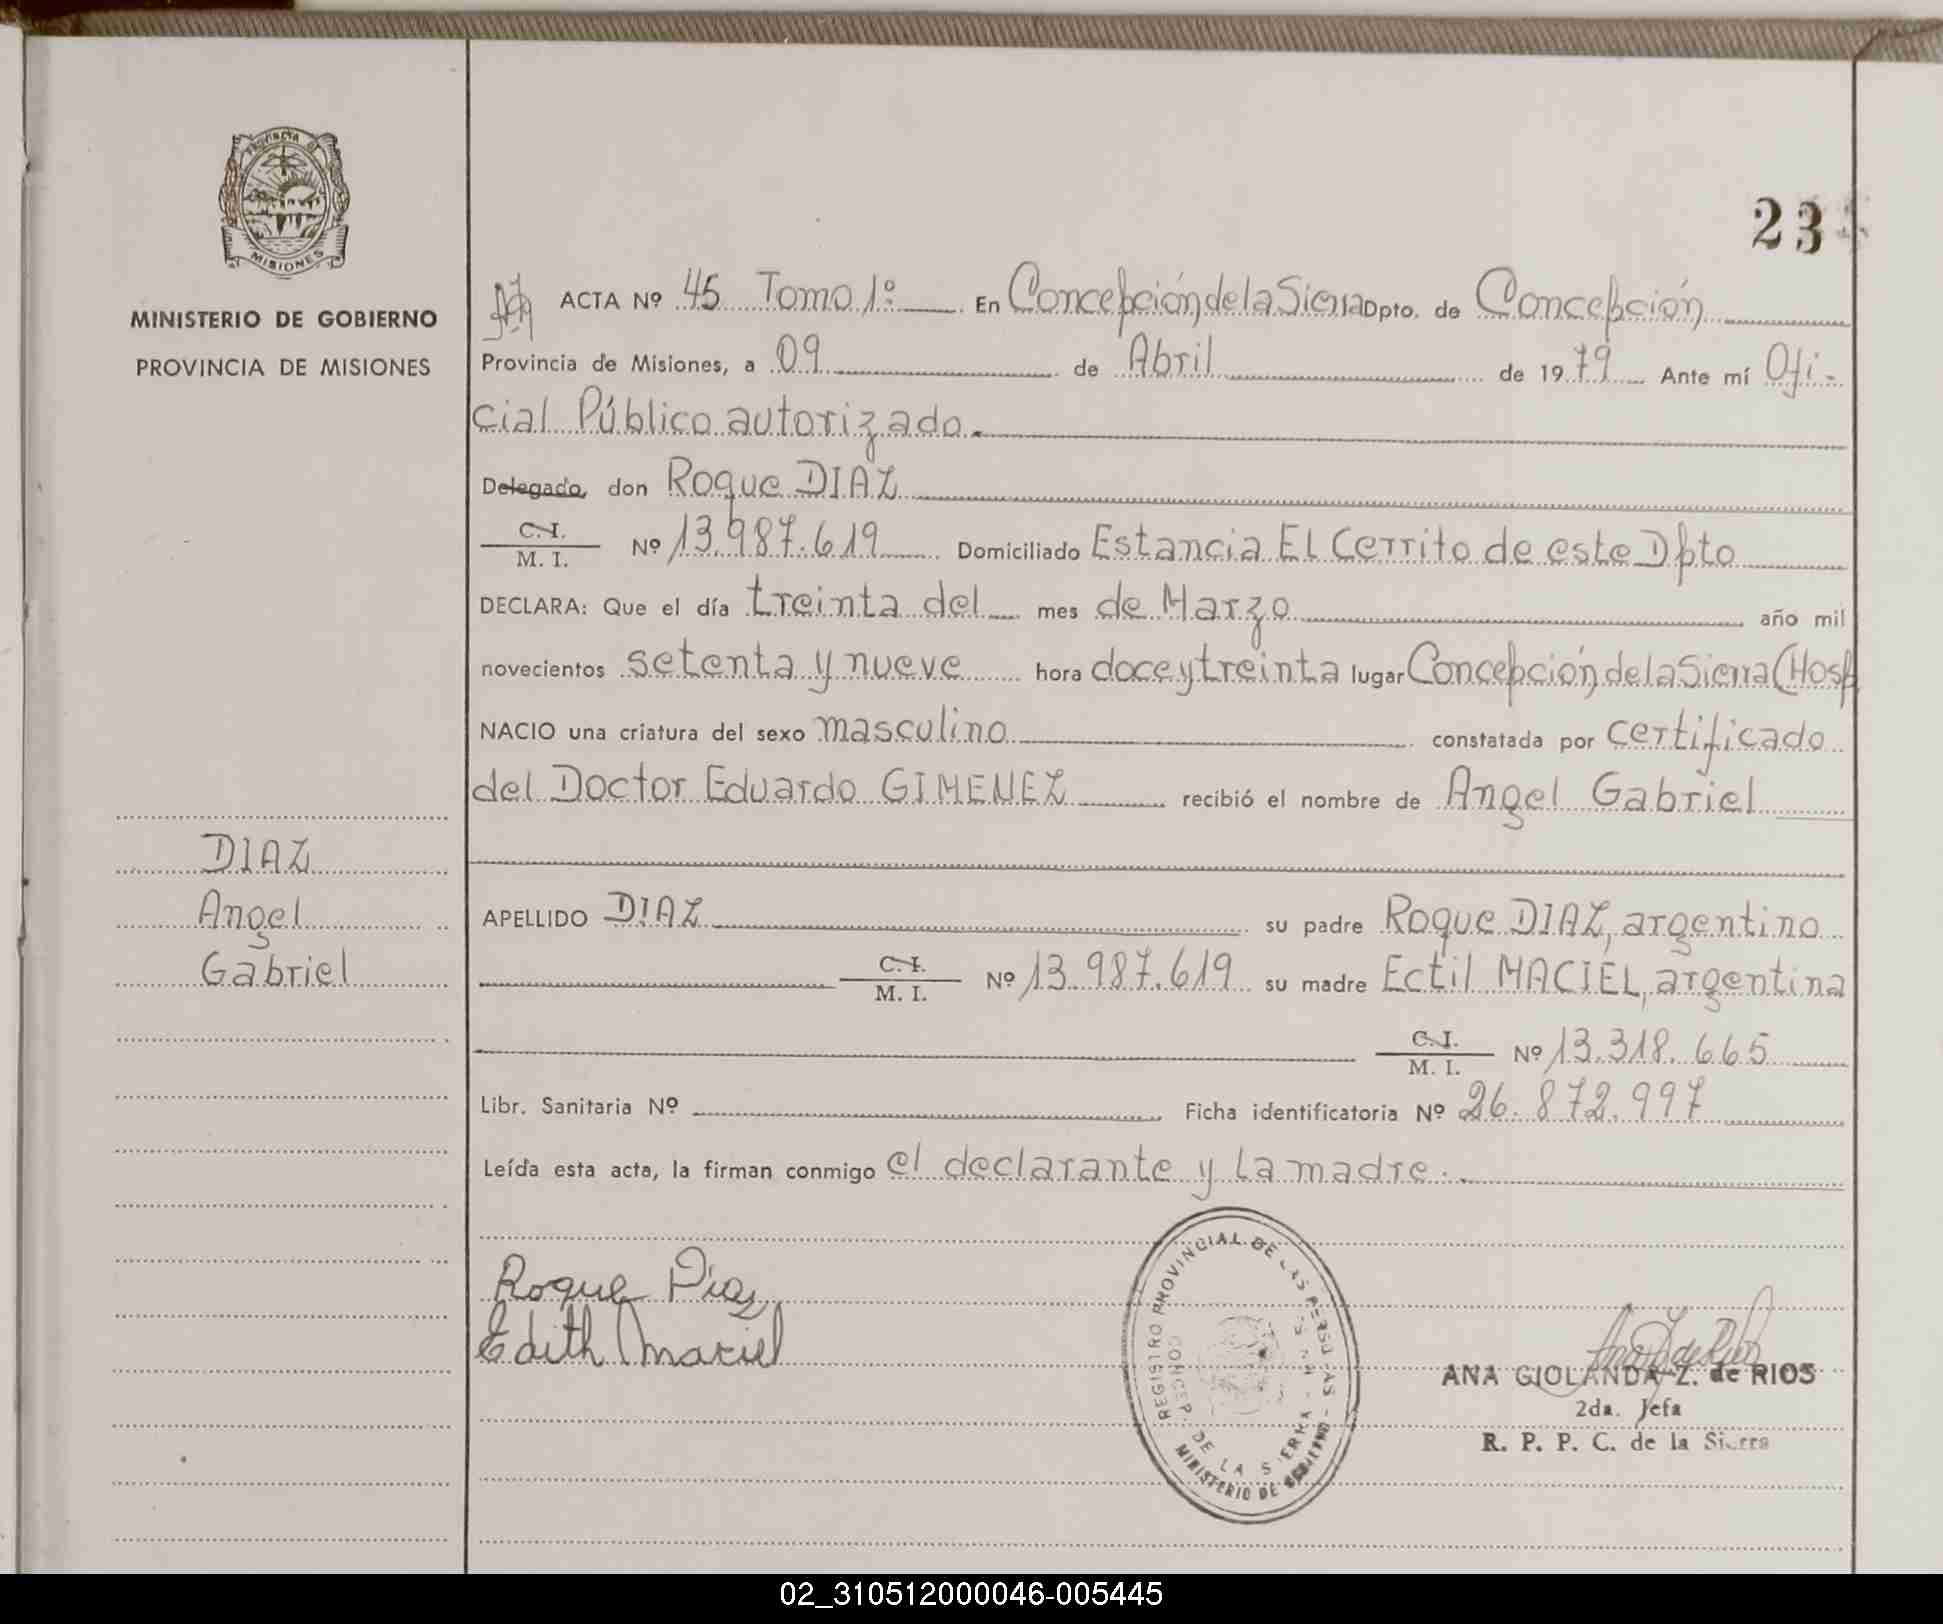 PROVINCIA DE
MISIONES
MINISTERIO DE GOBIERNO
PROVINCIA DE MISIONES
DIAZ
Angel
Gabriel
23
ACTA Nº 45 Tomo 1º En Concepción de la Sierra Dpto. de Concepción
Provincia de Misiones, a 09 de Abril de 1979 Ante mí Ofi-
cial Público autorizado.
Delegado, don Roque DIAZ
C. I.
M. I. Nº 13.987.619 Domiciliado Estancia El Cerrito de este Dpto
DECLARA: Que el día treinta del mes de Marzo año mil
novecientos setenta y nueve hora doce y treinta lugar Concepción de la Sierra (Hosp
NACIO una criatura del sexo masculino constatada por certificado
del Doctor Eduardo GIMENEZ recibió el nombre de Angel Gabriel
APELLIDO DIAZ su padre Roque DIAZ, argentino
C. I.
M. I. Nº 13.987.619 su madre Ectil MACIEL, argentina
C. I.
M. I. Nº 13.318.665
Libr. Sanitaria Nº Ficha identificatoria Nº 26.872.997
Leída esta acta, la firman conmigo el declarante y la madre.
Roque Diaz
Edith Maciel
REGISTRO PROVINCIAL DE LAS PERSONAS
CONCEP. DE LA SIERRA
MINISTERIO DE GOBIERNO
ANA GIOLANDA Z. de RIOS
2da. Jefa
R. P. P. C. de la Sierra
02_310512000046-005445